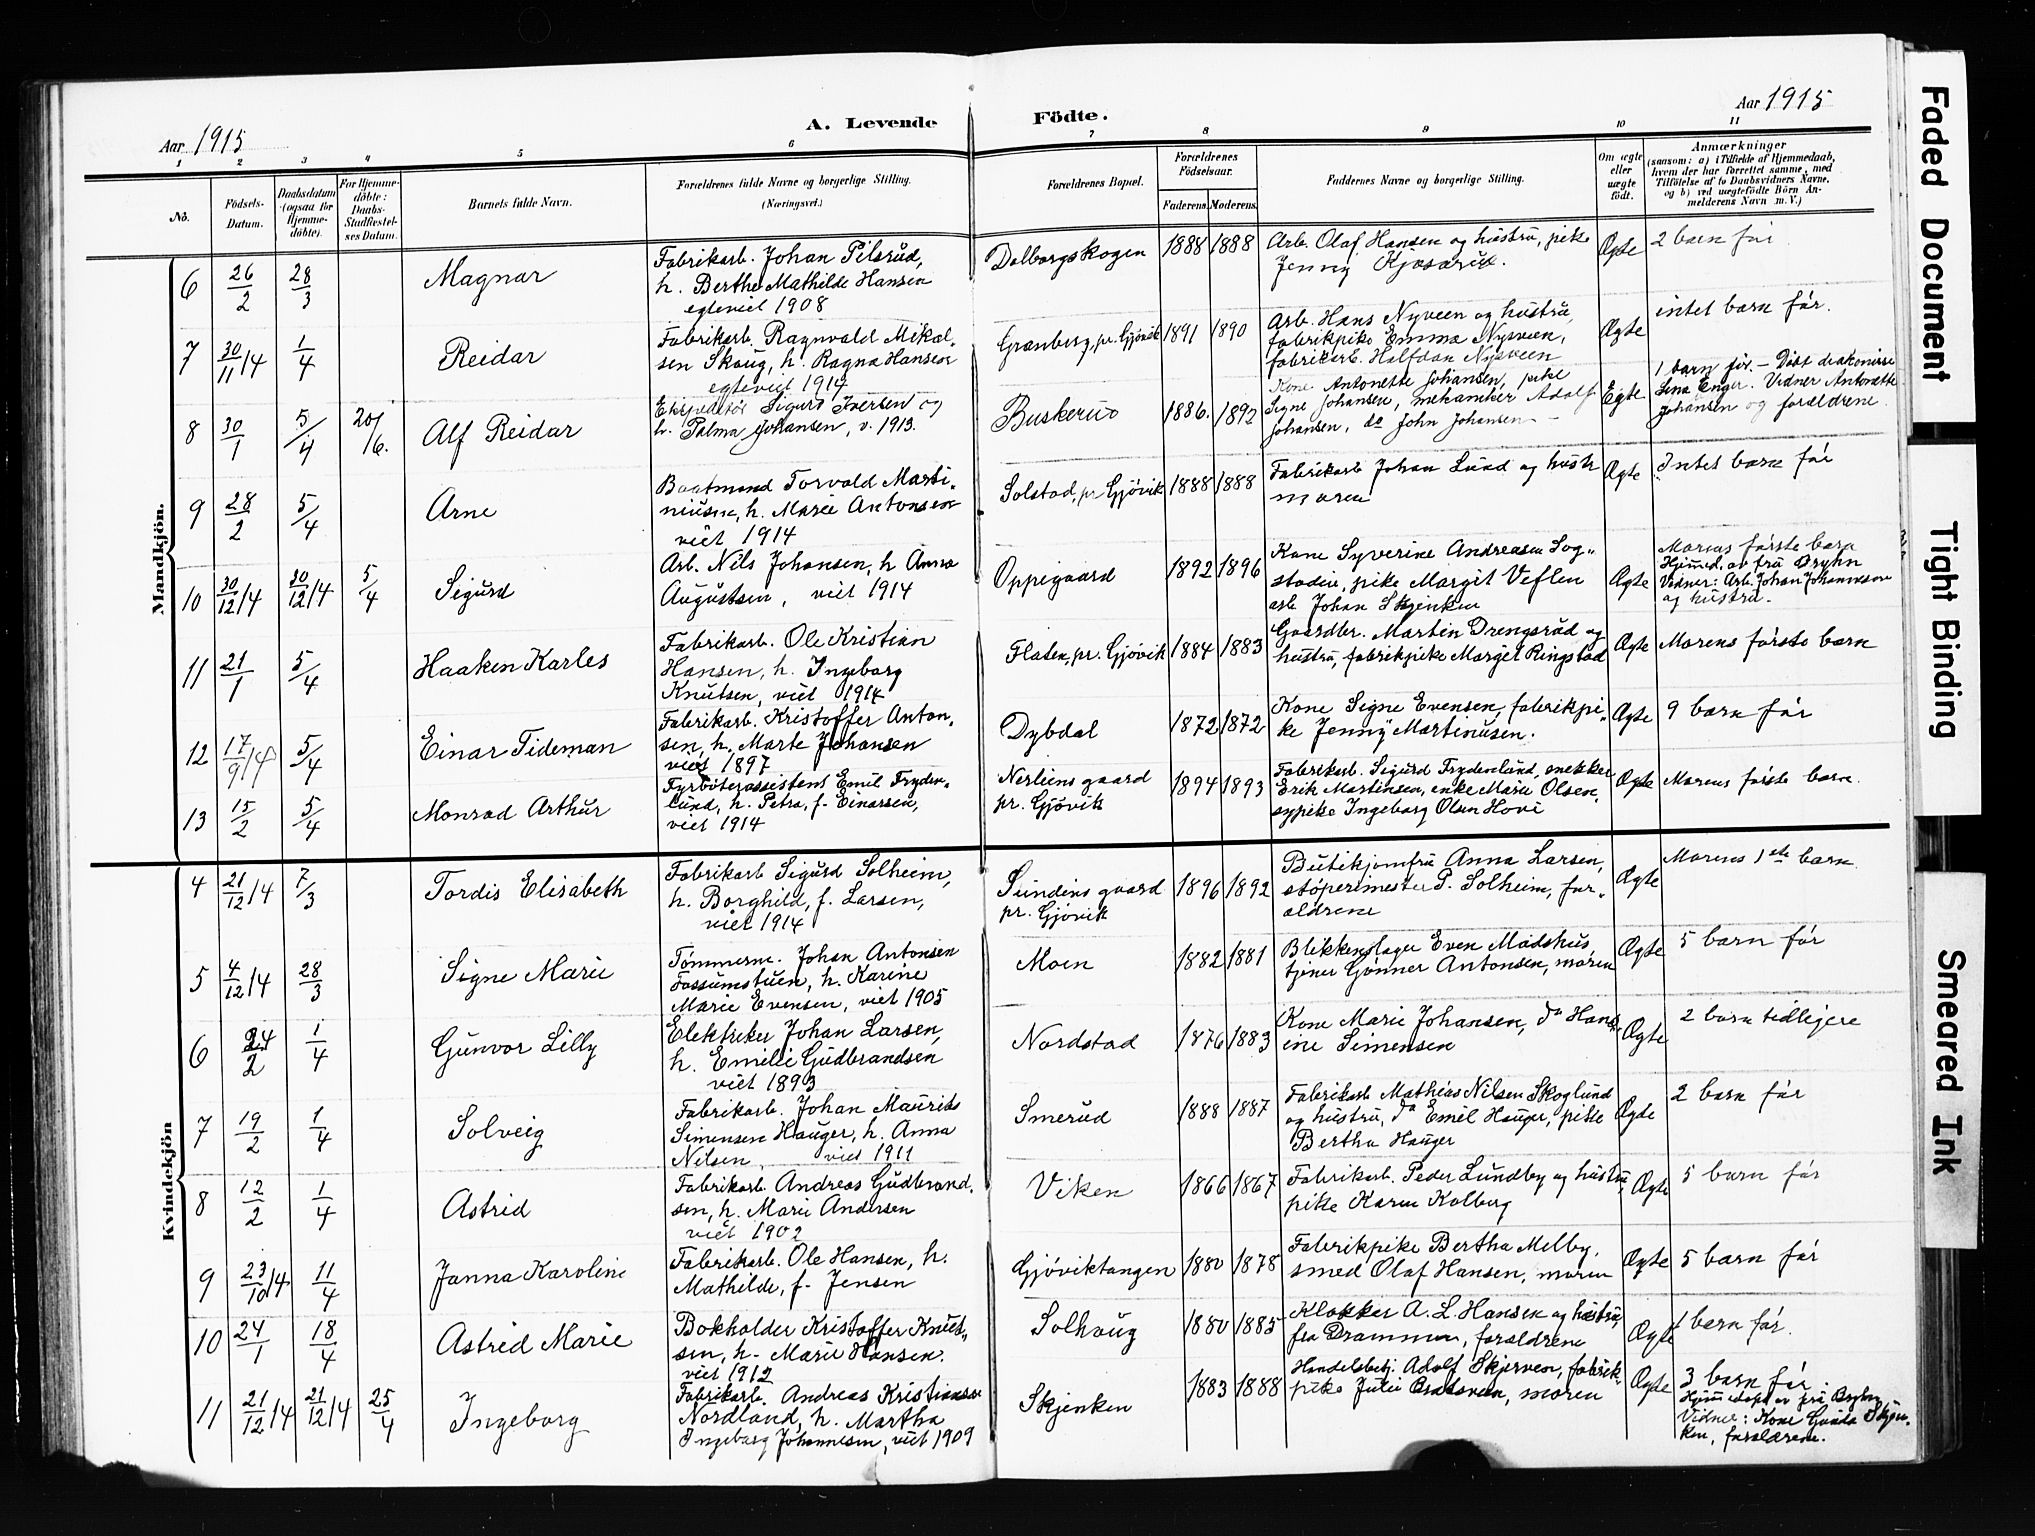 Aar 1915
A. Levende Födte.
Aar 1915
1 2 3 4 5 6 7 8 9 10 11
No.
Födsels-Datum.
Daabsdatum (ogsaa for Hjemmedöbte).
For Hjemmedöbte: Daabs-Stadfæstelses Datum.
Barnets fulde Navn.
Forældrenes fulde Navne og borgerlige Stilling.
(Næringsvei.)
Forældrenes Bopæl.
Forældrenes Födselsaar.
Faderens. Moderens.
Faddernes Navne og borgerlige Stilling.
Om ægte eller uægte födt.
Anmærkninger
(saasom: a) i Tilfælde af Hjemmedaab, hvem der har forrettet samme, med Tilföielse af to Daabsvidners Navne, og b) ved uægtefödte Börn Anmelderens Navn m. V.)
Mandkjön.
6 26/2 28/3 Magnar
Fabrikarb. Johan Pilsrud,
h. Berthe Mathilde Hansen
egteviet 1908
Dalborgskogen 1888 1888
Arb. Olaf Hansen og hustru, pike
Jenny
Ægte 2 barn før
7 30/11 14 1/4 Reidar
Fabrikarb. Ragnvald Mikal-
sen Skoug, h. Ragna Hansen
egteviet 1914
Granberg, pr. Gjøvik 1891 1890
Arb. Hans Nyveen og hustru,
fabrikpike Emma Nysveen,
fabrikarb. Halfdan Nysveen
Ægte intet barn før.
8 30/1 5/4 20/6. Alf Reidar
Sigurd Iversen og
h. Palma Johansen, v. 1913.
Buskerud 1886. 1892
Kone Antonette Johansen, pike
Signe Johansen, mekaniker Adolf
Johansen, do John Johansen
Egte 1 barn før. – Døbt diakonisse
Lina Enger. Vidner Antonette
Johansen og forældrene
9 28/2 5/4 Arne
Baatmand Torvald Marti-
niusen, h. Marie Antonsen
viet 1914
Solstad, pr. Gjøvik 1888 1888
Fabrikarb Johan Lund og hustr
moren
Ægte Intet barn før
10 30/12 14 30/12 14 5/4 Sigurd
Arb. Nils Johansen, h Anna
Augustsen, viet 1914
Oppegaard 1892 1896
Kone Syverine Andreasen Sog-
stadei, pike Margit Veflen
arb Johan Skjenken
Ægte Morens første barn
Hjemmed. av fru Bryhn
Vidner: Arb. Johan Johannesen
og hustru.
11 21/1 5/4 Haaken Karles
Fabrikarb. Ole Kristian
Hansen, h. Ingeborg
Knutsen, viet 1914
Flaten, pr. Gjøvik 1884 1883
Gaardbr. Martin Drengsrud og
hustru, fabrikpike Margit Ringstad
Ægte Morens første barn
12 17/9 14 5/4 Einar Tideman
Fabrikarb. Kristoffer Anton-
sen, h. Marte Johansen
viet 1897
Dybdal 1872 1872
Kone Signe Evensen, fabrikpi-
ke Jenny Martinusen.
Ægte 9 barn før
13 15/2 5/4 Monrad Arthur
Fyrbøterassistent Emil Fryden-
lund, h. Petra, f. Einarsen,
viet 1914
Nerliens gaard
pr. Gjøvik 1894 1893
Fabrikarb. Sigurd Frydenlund, snekker
Erik Martinsen, enke Marie Olsen,
sypike Ingeborg Olsen Hovi
Ægte Morens første barn
Kvindekjön
4 21/12 14 7/3 Tordis Elisabeth
Fabrikarb Sigurd Solheim,
h. Borghild, f. Larsen,
viet 1914
Sundins gaard
pr. Gjøvik 1896 1892
Butikjomfru Anna Larsen,
støperimester P. Solheim, for-
ældrene
Ægte Morens 1ste barn
5 4/12 14 28/3 Signe Marie
Tømmerm. Johan Antonsen
Fossumstuen, h. Karine
Marie Evensen, viet 1905
Moen 1882 1881
Blikkenslager Even Madshus,
tjener Gunner Antonsen, moren
Ægte 5 barn før
6 24/2 1/4 Gunvor Lilly
Elektriker Johan Larsen,
h. Emilie Gudbrandsen
viet 1893
Nordstad 1876 1883
Kone Marie Johansen, do Hans-
ine Simensen
Ægte 2 barn tidligere
7 19/2 1/4 Solveig
Fabrikarb. Johan Maurits
Simensen Hauger, h. Anna
Nilsen, viet 1911
Smerud 1888 1887
Fabrikarb Mathias Nilsen Skoglund
og hustru, do Emil Hauger, pike
Bertha Hauger
Ægte 2 barn før
8 12/2 1/4 Astrid
Fabrikarb. Andreas Gudbrand-
sen, h. Marie Andersen
viet 1902
Viken 1866 1867
Fabrikarb. Peder Lundby og hustru,
pike Karen Kolberg
Ægte 5 barn før
9 23/10 14 11/4 Janna Karoline
Fabrikarb. Ole Hansen, h.
Mathilde, f. Jensen
Gjøviktangen 1880 1878
Fabrikpike Bertha Melby,
smed Olaf Hansen, moren
Ægte 5 barn før
10 24/1 18/4 Astrid Marie
Bokholder Kristoffer Knut-
sen, h. Marie Hansen.
viet 1912
Solhaug 1880 1885
Klokker A. L. Hansen og hustru,
fra Drammen, forældrene
Ægte 1 barn før.
11 21/12 14 21/12 14 25/4 Ingeborg
Fabrikarb. Andreas Kristiansen
Nordland, h. Martha
Ingeborg Johannesen, viet 1909
Skjenken 1883 1888
Handelsbetj. Adolf Skjerven, fabrik-
pike Julie Bratsveen, moren
Ægte 3 barn før.
Hjemmedøpt av fru Bryhn
Vidner: Kone Gunda Skjen-
ken, forældrene.
Faded Document
Tight Binding
Smeared Ink